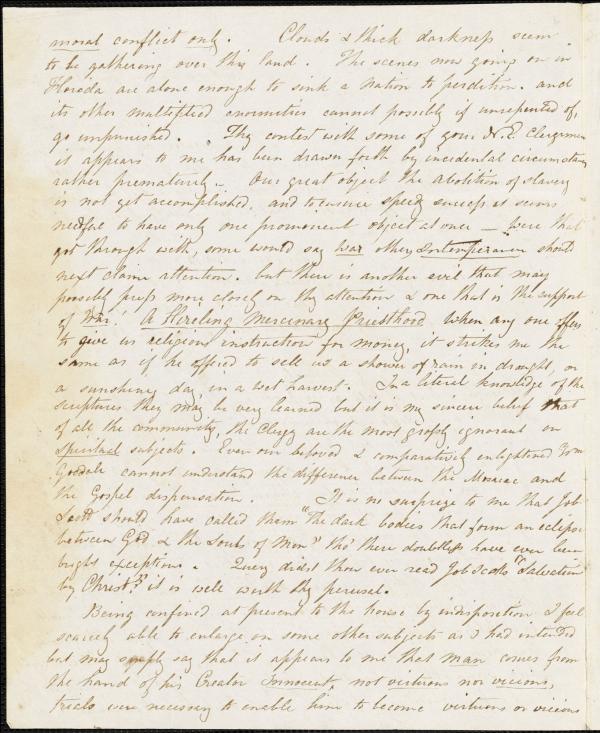 moral conflict only. Clouds & thick darkness seem
to be gathering over this land. The scenes now going on in
Floroda are alone enough to sink a nation to perdition. and
its other multiplied enormities cannot possibly if unrepented of,
go unpunished. Thy contest with some of your N.E. Clergymen
it appears to me has been drawn forth by incidental circumstances
rather prematurely – Our great object the abolition of slavery
is not yet accomplished, and to ensure speedy success it seems
needful to have only one prominent object at once – were that
got through with, some would say war others Intemperance should
next claim attention. but there is another evil that may
possibly press more closely on thy attention & one that is the support
of War! A Hireling Mercenary Priesthood when any one offers
to give us religious instruction for money, it strikes me the
same as if he offered to sell us a shower of rain in drought, or
a sunshiny day, in a wet harvest. In a literal knowledge of the
scriptures they may be very learned but it is my sincere belief that
of all the community, the Clergy are the most grossly ignorant in
Spiritual subjects. Even our beloved & comparatively enlightened
cannot understand the difference between the Mosaic and
the Gospel dispensation. It is no surprize to me that Job
Scott should have called them "The dark bodies that form an eclipse
between God & the Souls of Men" tho' there doubtless have ever been
bright exceptions. Query didst thou ever read Job Scotts "Salvation
by Christ"? it is well worth thy perusal.
Being confined at present to the house by indisposition I feel
scarcely able to enlarge on some other subjects as I had intended
but may simply say that it appears to me that man comes from
the hand of his Creator Innocent, not virtuous nor vicious,
trials were necessary to enable him to become virtuous or vicious